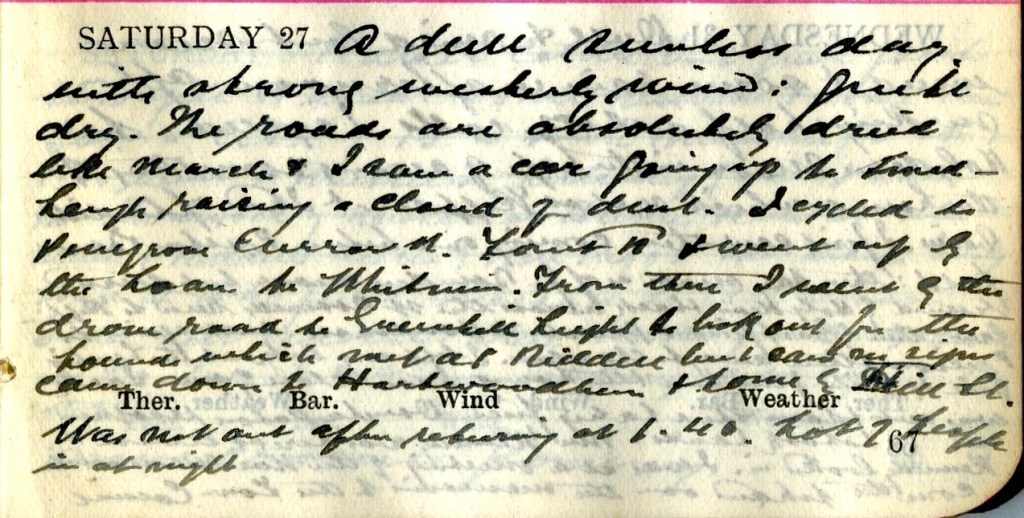 SATURDAY 27 A dull sunless day
with strong westerly wind: quite
dry. The roads are absolutely dried
like March & I saw a car going up to
raising a cloud of dust. I cycled to
& went up by
the Loan to Whitmuir. From there I went by the
drove road to Greenhill height to look out for the
hounds which met at Riddell but saw no signs
came down to Hartwoodburn & home by
Ther. Bar. Wind Weather
Was not out after returning at 1.40. Lot of people
in at night
67